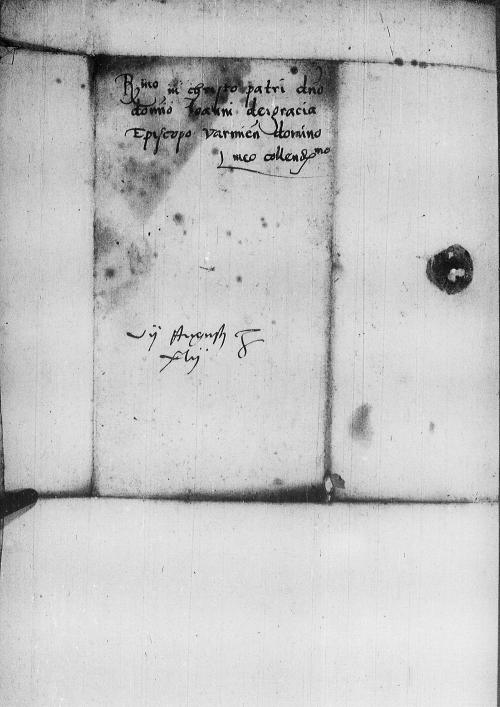 R̅mo in christo patri dno
domino Joanni dei gracia
Episcopo varmien̅ domino
meo collen mo
vij Augusti
xlij